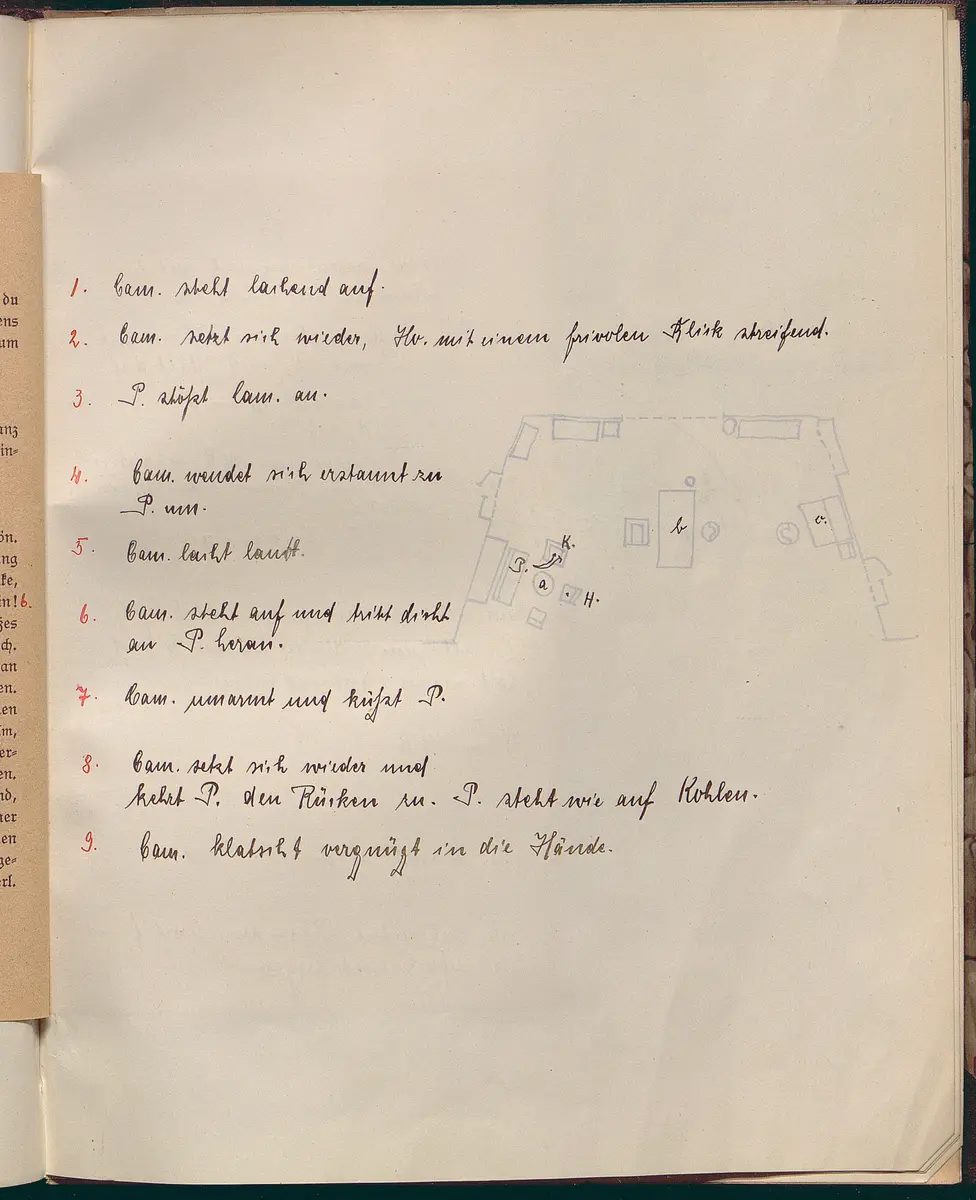 du
ens
um
anz
in=
ön.
ng
in! 6.
zes
ch.
an
en.
en
im,
er=
en.
nd,
ner
en
ge=
erl.
1. Cam. steht lachend auf.
2. Cam. setzt sich wieder, Hv. mit einem frivolen Blick streifend.
3. P. stößt Cam. an.
4. Cam. wendet sich erstaunt zu
P. um.
5. Cam. lacht laut.
6. Cam. steht auf und tritt dicht
an P. heran.
7. Cam. umarmt und küßt P.
8. Cam. setzt sich wieder und
kehrt P. den Rücken zu. P. steht wie auf Kohlen.
9. Cam. klatscht vergnügt in die Hände.
b
c.
K.
P.
a
H.